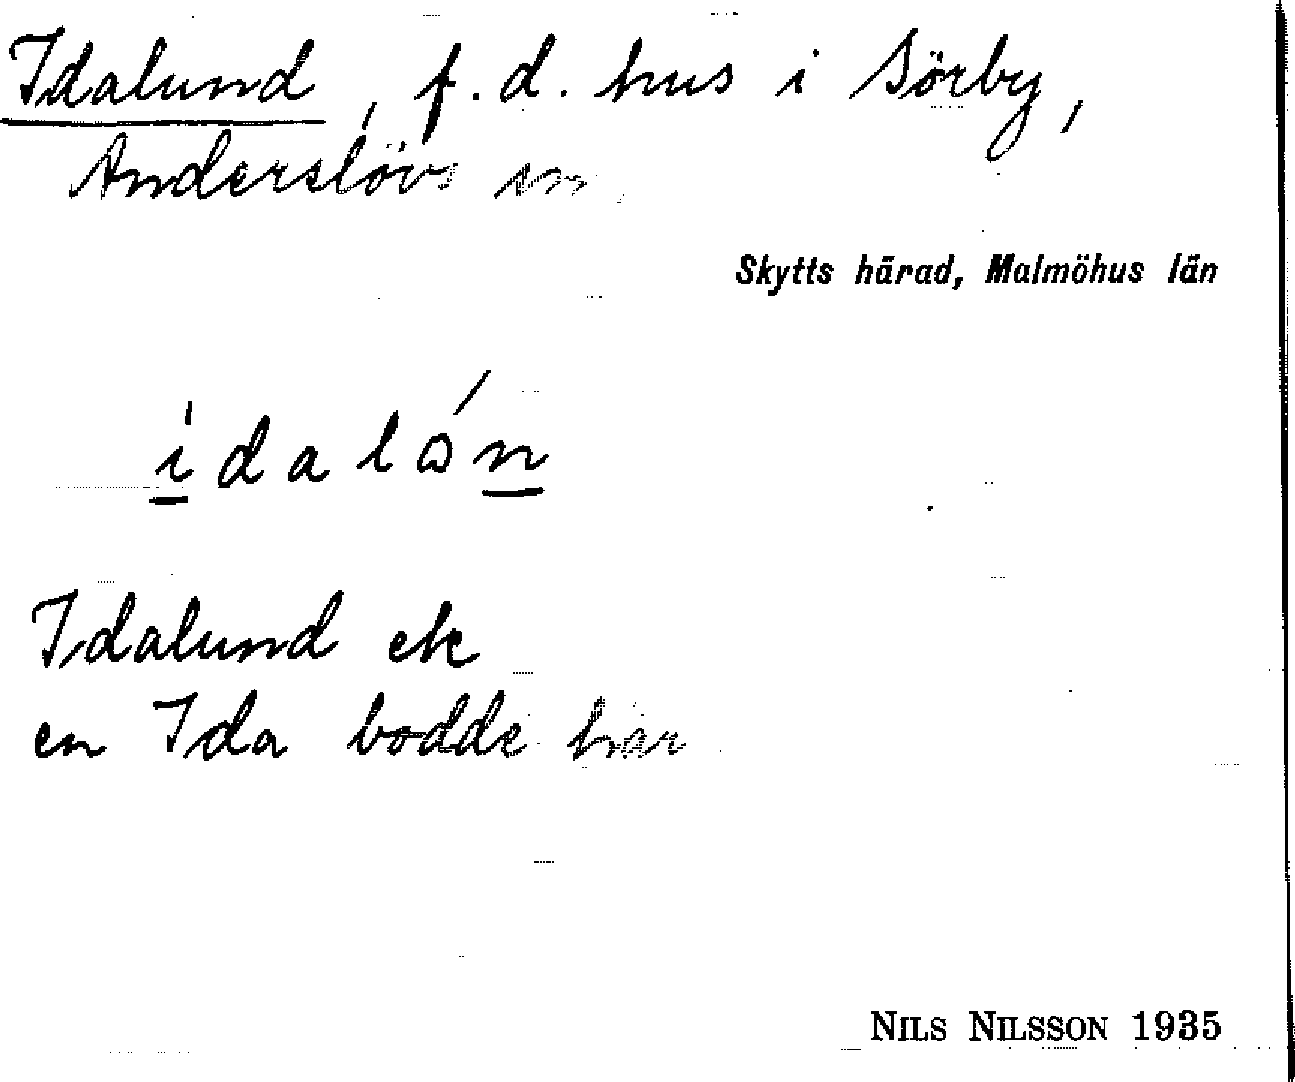 Idalund, f.d. hus i Sörby,
Anderslövs sn.
Skytts härad, Malmöhus län
i̲dalón̲
Idalund ek
en Ida bodde här
NILS NILSSON 1935